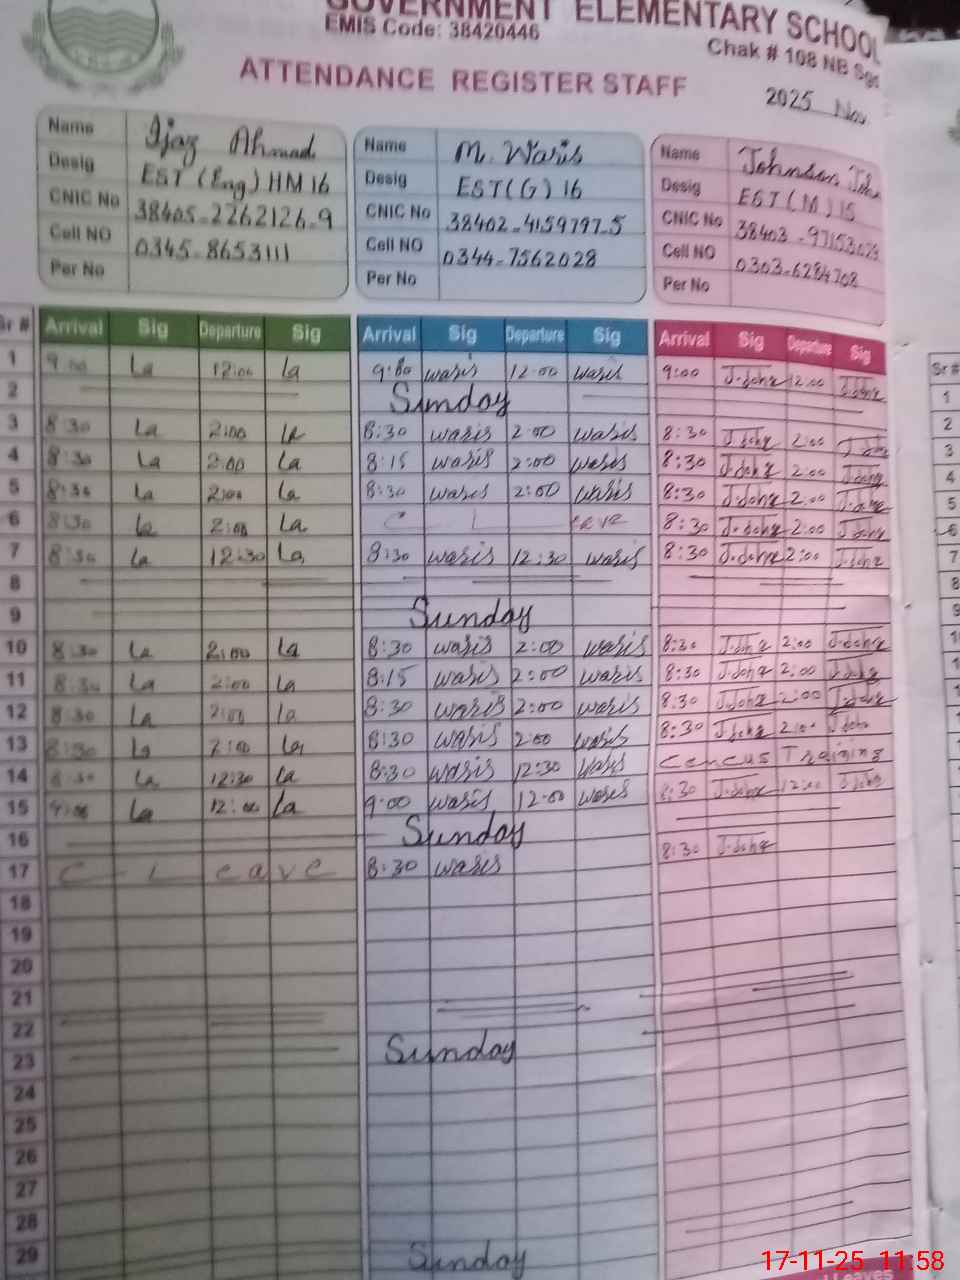 GOVERNMENT ELEMENTARY SCHOOL
EMIS Code: 38420446
Chak # 108 NB Sgs
ATTENDANCE REGISTER STAFF
2025 Nov
Name Ijaz Ahmad
Desig EST (Eng) HM 16
CNIC No 38405-2262126-9
Cell NO 0345-8653111
Per No
Name M. Waris
Desig EST(G) 16
CNIC No 38402-4159797-5
Cell NO 0344-7562028
Per No
Name Johnson
Desig EST (M) 15
CNIC No 38403
Cell NO 0303-6284708
Per No
Sr # Arrival Sig Departure Sig Arrival Sig Departure Sig Arrival Sig Departure Sig
1 9:00 La 12:00 La 9:00 waris 12:00 waris 9:00 J.John 12:00 J.John
2 Sunday
3 8:30 La 2:00 La 8:30 waris 2:00 waris 8:30 J.John 2:00 J.John
4 8:30 La 2:00 La 8:15 waris 2:00 waris 8:30 J.John 2:00 J.John
5 8:30 La 2:00 La 8:30 waris 2:00 waris 8:30 J.John 2:00 J.John
6 8:30 La 2:00 La C Leave 8:30 J.John 2:00 J.John
7 8:30 La 12:30 La 8:30 waris 12:30 waris 8:30 J.John 2:00 J.John
8
9 Sunday
10 8:30 La 2:00 La 8:30 waris 2:00 waris 8:30 J.John 2:00 J.John
11 8:30 La 2:00 La 8:15 waris 2:00 waris 8:30 J.John 2:00 J.John
12 8:30 La 2:00 La 8:30 waris 2:00 waris 8:30 J.John 2:00 J.John
13 8:30 La 2:00 La 8:30 waris 2:00 waris 8:30 J.John 2:00 J.John
14 8:30 La 12:30 La 8:30 waris 12:30 waris Cencus Training
15 9:00 La 12:00 La 9:00 waris 12:00 waris 8:30 J.John 12:00 J.John
16 Sunday
17 C - Leave 8:30 waris 8:30 J.John
18
19
20
21
22
23 Sunday
24
25
26
27
28
29 Sunday
Sr #
1
2
3
4
5
6
7
8
9
17-11-25 11:58